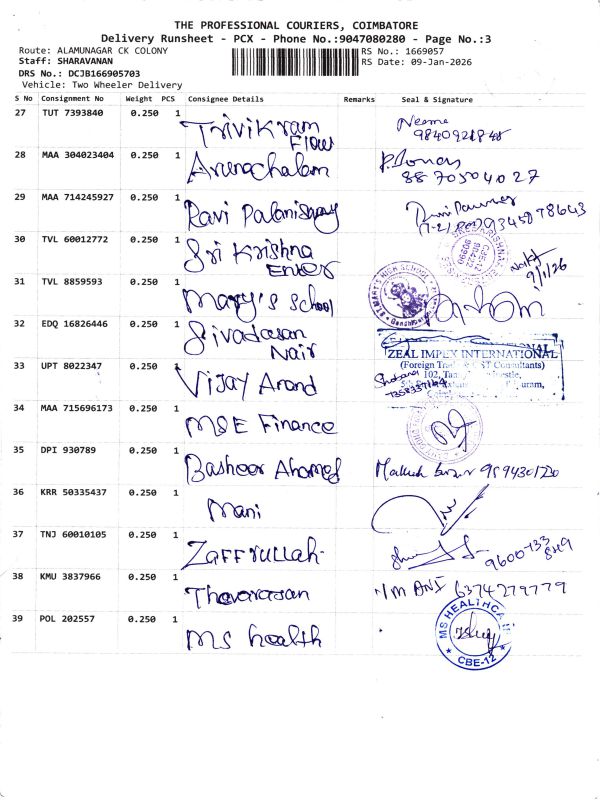 THE PROFESSIONAL COURIERS, COIMBATORE
Delivery Runsheet - PCX - Phone No.:9047080280 - Page No.:3
Route: ALAMUNAGAR CK COLONY RS No.: 1669057
Staff: SHARAVANAN RS Date: 09-Jan-2026
DRS No.: DCJB166905703
Vehicle: Two Wheeler Delivery
S No Consignment No Weight PCS Consignee Details Remarks Seal & Signature
27 TUT 7393840 0.250 1 Trivikram
Flow
28 MAA 304023404 0.250 1 Arunachalam
8870504027
29 MAA 714245927 0.250 1 Ravi Palanisamy
30 TVL 60012772 0.250 1 Sri Krishna
Enter
9/1/26
31 TVL 8859593 0.250 1 Mary's School
HIGH SCHOOL
32 EDQ 16826446 0.250 1 Sivadasan
Nair
ZEAL IMPEX INTERNATIONAL
(Foreign Trade & CST Consultants)
33 UPT 8022347 0.250 1 Vijay Anand
34 MAA 715696173 0.250 1 MSE Finance
35 DPI 930789 0.250 1 Basheer Ahamed
36 KRR 50335437 0.250 1 Mani
37 TNJ 60010105 0.250 1 Zaffrullah
9600-733
38 KMU 3837966 0.250 1 Thavarasan
6374279779
39 POL 202557 0.250 1 MS health
MS HEALTHCARE
CBE-12